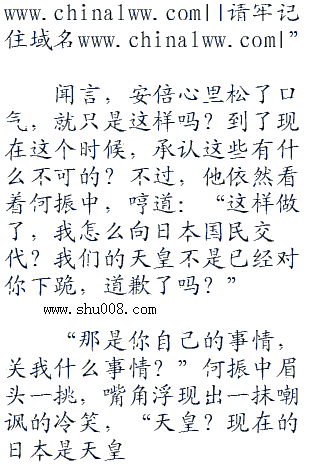 www.chinalww.com||请牢记
住域名www.chinalww.com|”
闻言，安倍心里松了口
气，就只是这样吗？到了现
在这个时候，承认这些有什
么不可的？不过，他依然看
着何振中，哼道：“这样做
了，我怎么向日本国民交
代？我们的天皇不是已经对
你下跪，道歉了吗？”
www.shu008.com
“那是你自己的事情，
关我什么事情？”何振中眉
头一挑，嘴角浮现出一抹嘲
讽的冷笑，“天皇？现在的
日本是天皇